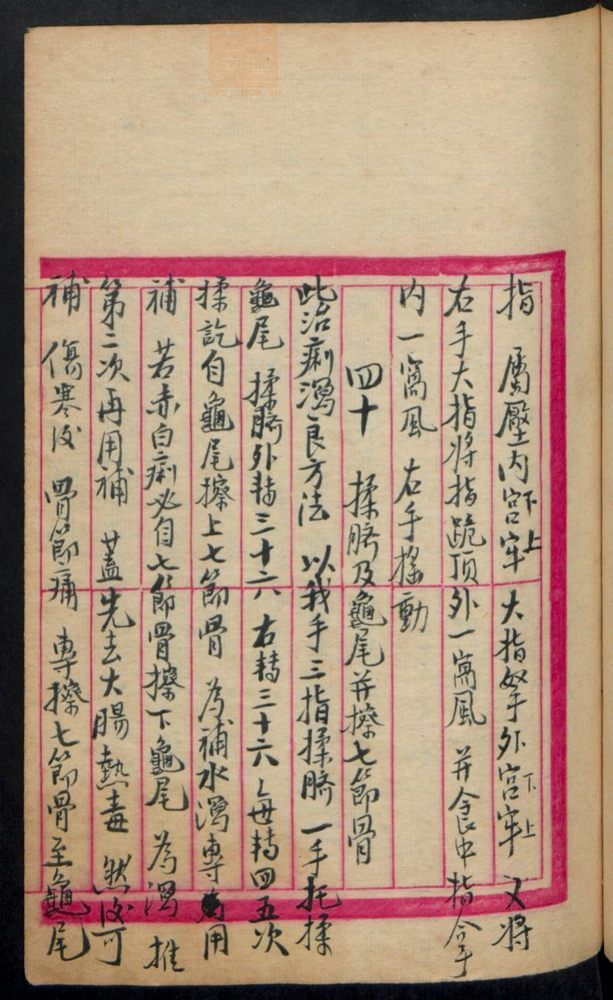 指 屬壓內宮下上牢 大指拏外宮下上牢 又將
右手大指將指跪頂外一窩風 并食中指令手
內一窩風 右手搖動
四十 揉臍及龜尾并擦七節骨
此治痢瀉良方法 以我手三指揉臍 一手托揉
龜尾 揉臍外轉三十六 右轉三十六 每轉四五次
揉訖自龜尾擦上七節骨 為補水瀉專用
補 若赤白痢必自七節骨擦下龜尾 為瀉 推
第二次再用補 蓋先去大腸熱毒 然後可
補 傷寒後 骨節痛 專擦七節骨至龜尾